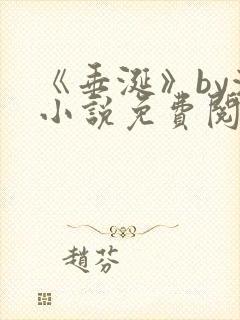 《垂涎》by
小說免費閱
趙芬